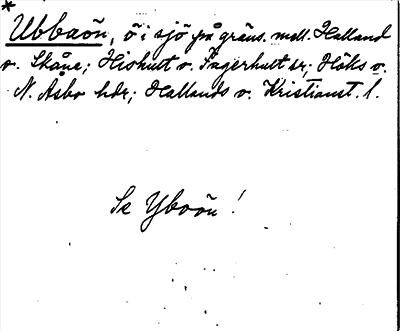 *
Ubbaön, ö i sjö på gräns. mell. Halland
o. Skåne; Hishult o. Fagerhult sr; Höks o.
N. Åsbo hdr; Hallands o. Kristianst. l.
Se Yboön!